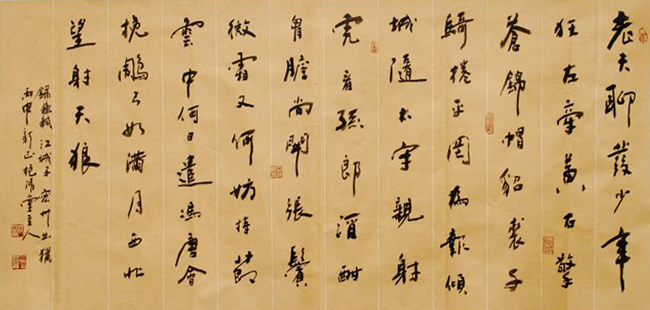 老夫聊發少年
狂左牽黃右擎
蒼錦帽貂裘千
騎捲平岡為報傾
城隨太守親射
虎看孫郎酒酣
胸膽尚開張鬢
微霜又何妨持節
雲中何日遣馮唐會
挽鵰弓如滿月西北
望射天狼
錄蘇軾江城子密州出獵
丙申新正主人